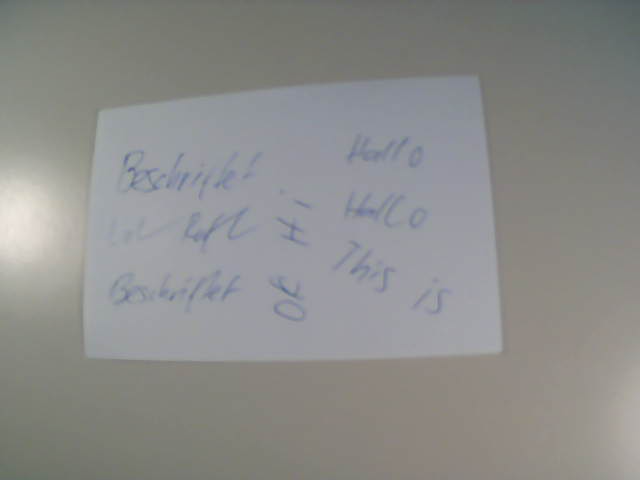 Beschriftet
Lol Rofl
Beschriftet
Hi
Ok
Hallo
Hallo
This is